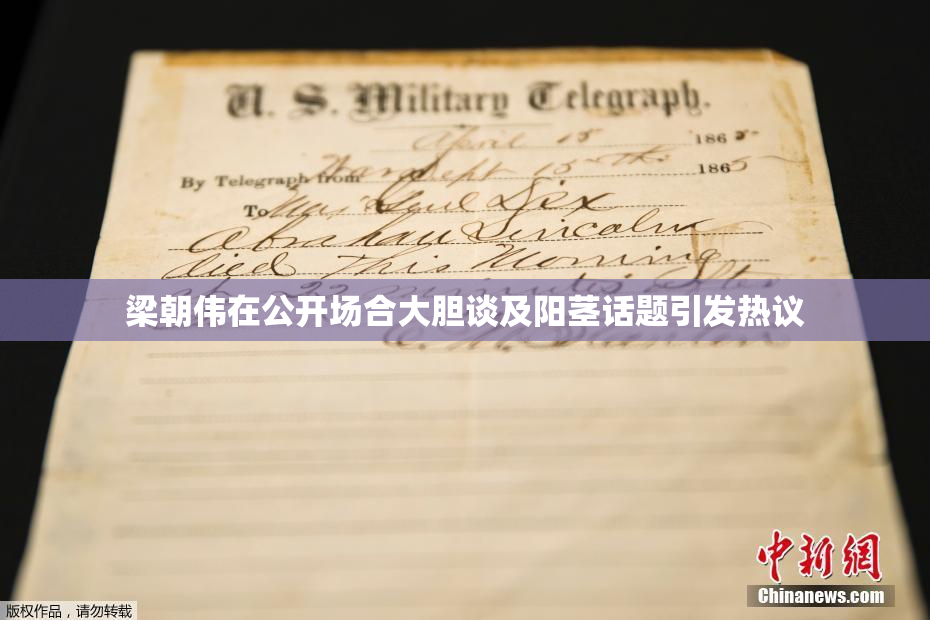 U. S. Military Telegraph.
April 15 1865
By Telegraph from War Dept 15th 1865
To Maj Genl Dix
Abraham Lincoln
died This Morning
at 22 minutes after
梁朝伟在公开场合大胆谈及阳茎话题引发热议
E. M. Stanton
中新网
Chinanews.com
版权作品，请勿转载